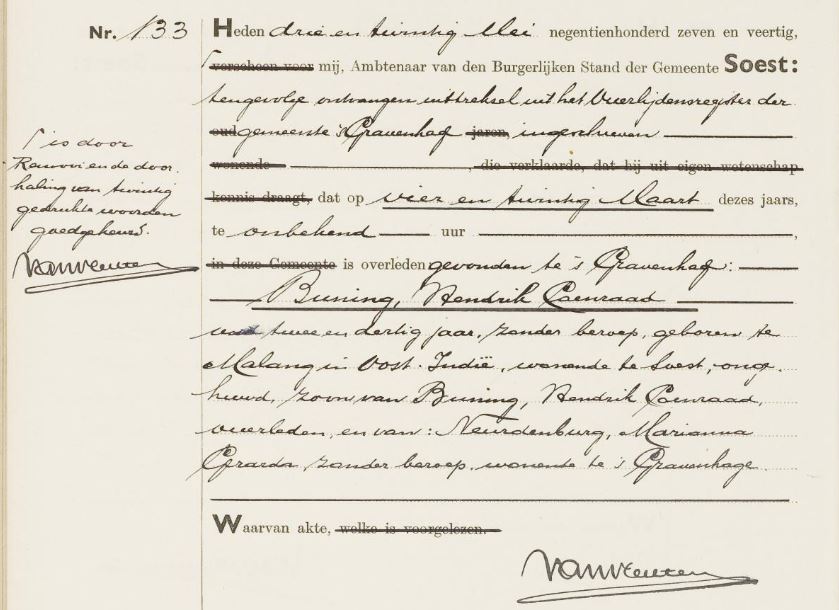 Nr. 133
Heden drie en twintig Mei negentienhonderd zeven en veertig,
verscheen voor mij, Ambtenaar van den Burgerlijken Stand der Gemeente Soest:
tengevolge ontvangen uittreksel uit het Overlijdensregister der
oud gemeente 's Gravenhage jaren, ingeschreven
wonende , die verklaarde, dat hij uit eigen wetenschap
kennis draagt, dat op vier en twintig Maart dezes jaars,
te onbekend uur ,
in deze Gemeente is overleden gevonden te 's Gravenhage:
Buning, Hendrik Coenraad
oud twee en dertig jaar, zonder beroep, geboren te
Malang in Oost-Indië, wonende te Soest, onge-
huwd, zoon van Buning, Hendrik Coenraad,
overleden, en van: Neurdenburg, Marianna
Gerarda, zonder beroep, wonende te 's Gravenhage
Waarvan akte, welke is voorgelezen.
is door
en de door-
haling van twintig
gedrukte woorden
goedgekeurd.